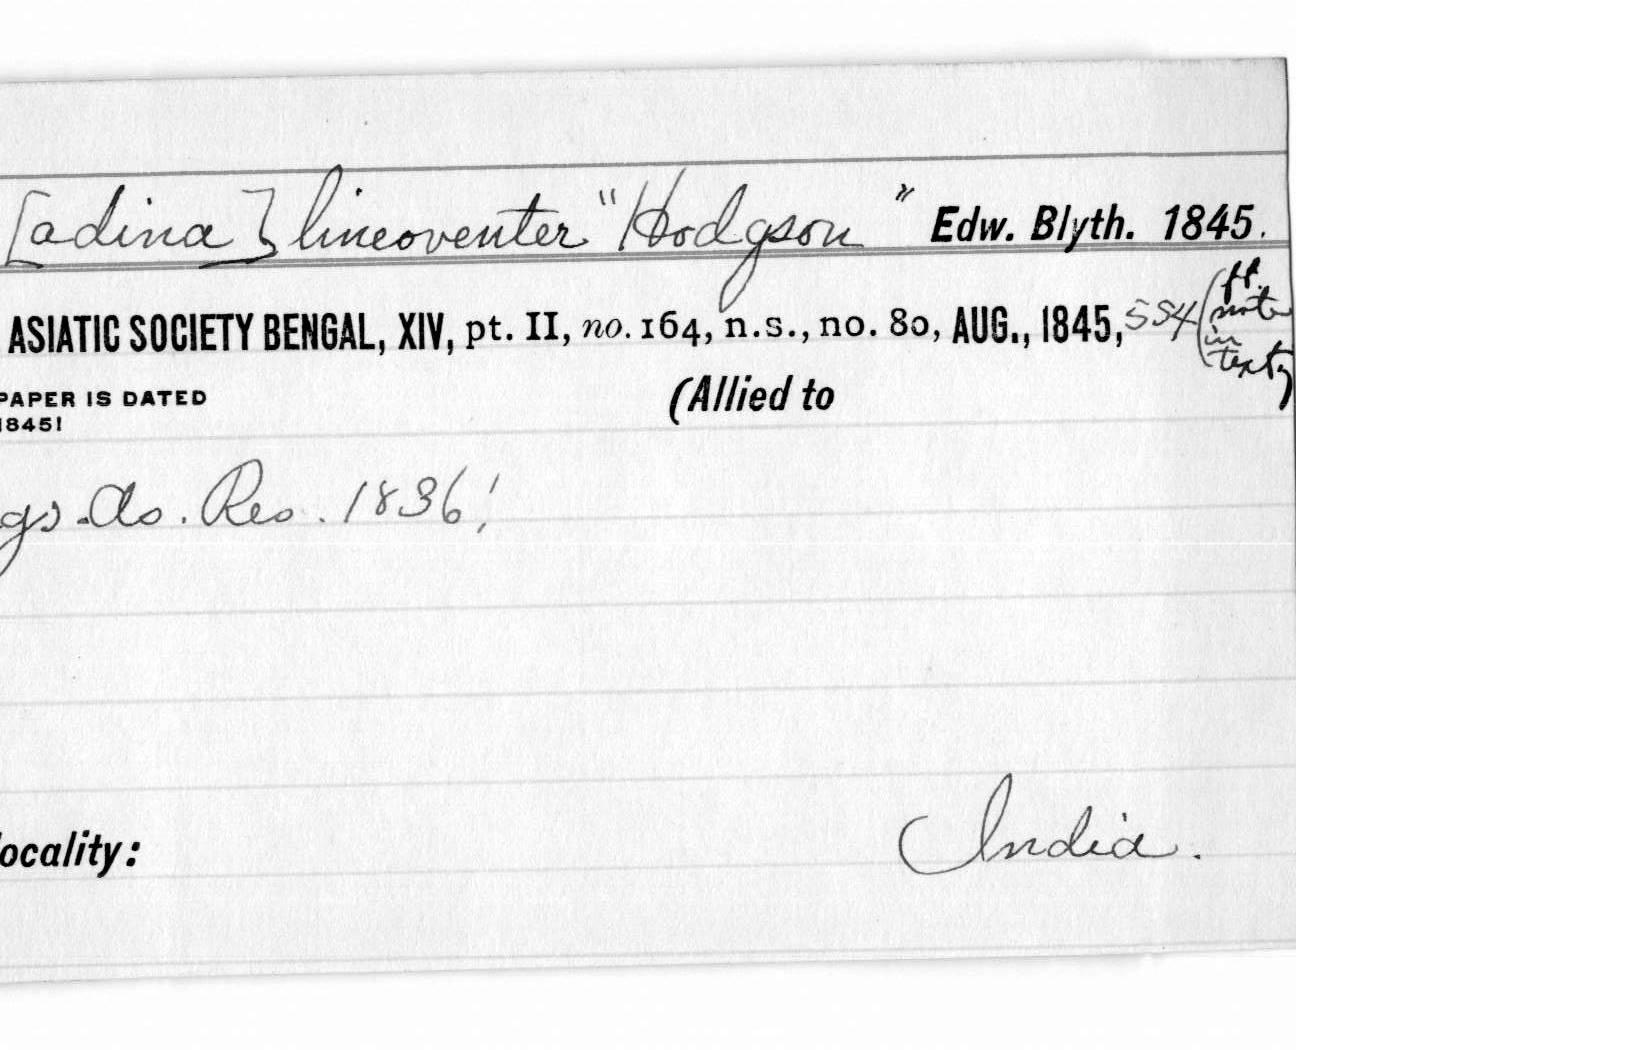 [adina] lineoventer "Hodgson" Edw. Blyth. 1845.
ASIATIC SOCIETY BENGAL, XIV, pt. II, no. 164, n.s., no. 80, AUG., 1845, 554 (ft. note in text)
PAPER IS DATED (Allied to
1845!
gs. As. Res. 1836!
locality: India.